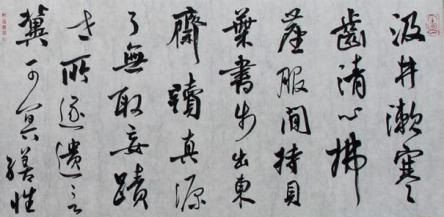 汲井漱寒
齒清心拂
塵服閒持貝
葉書步出東
齋讀真源
了無取妄蹟
世所逐遺言
冀可冥繕性